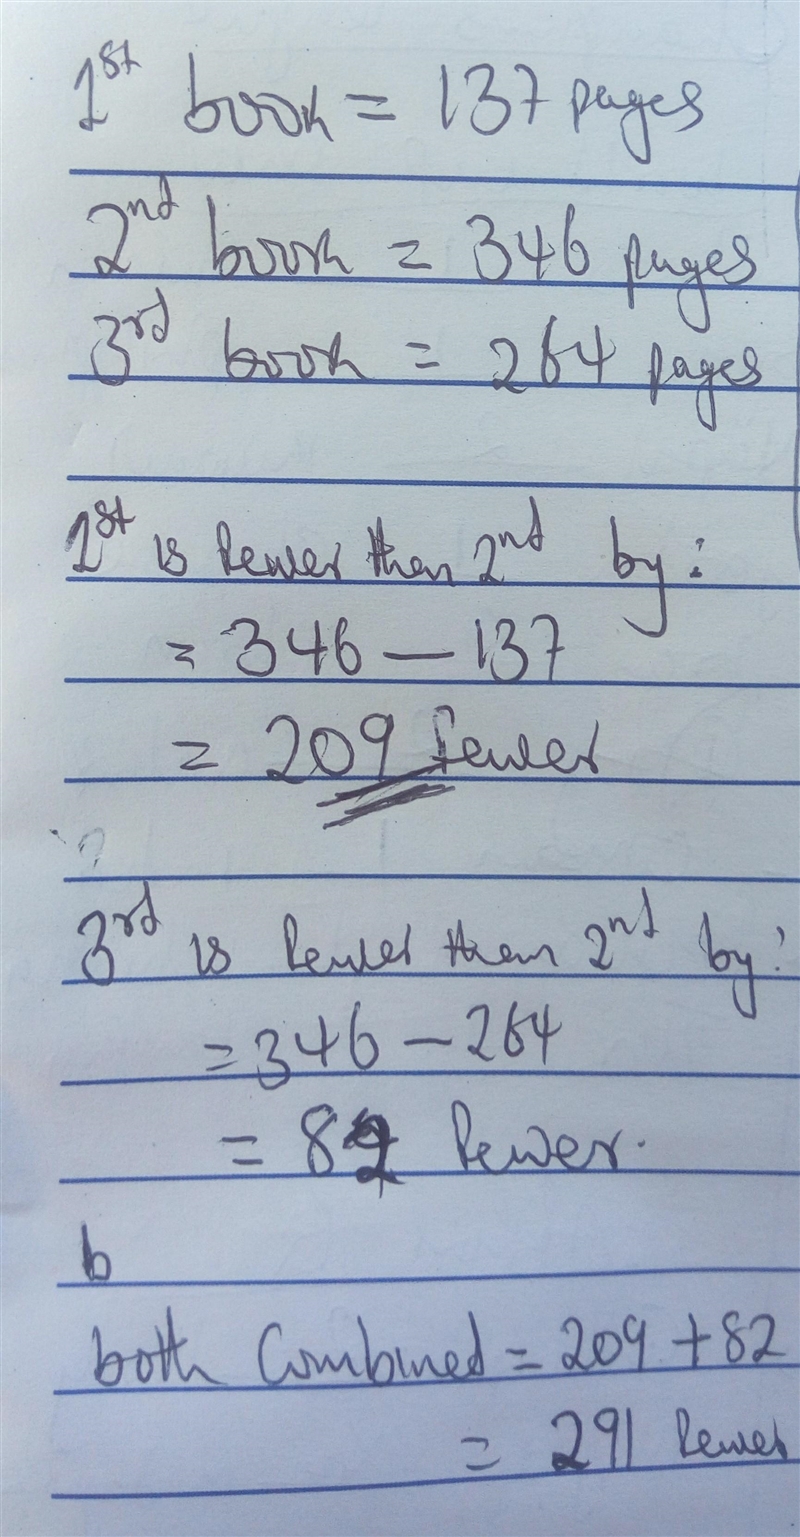 1st book = 137 pages
2nd book = 346 pages
3rd book = 264 pages
1st is fewer than 2nd by:
= 346 - 137
= 209 fewer
3rd is fewer than 2nd by:
= 346 - 264
= 82 fewer.
b
both Combined = 209 + 82
= 291 fewer